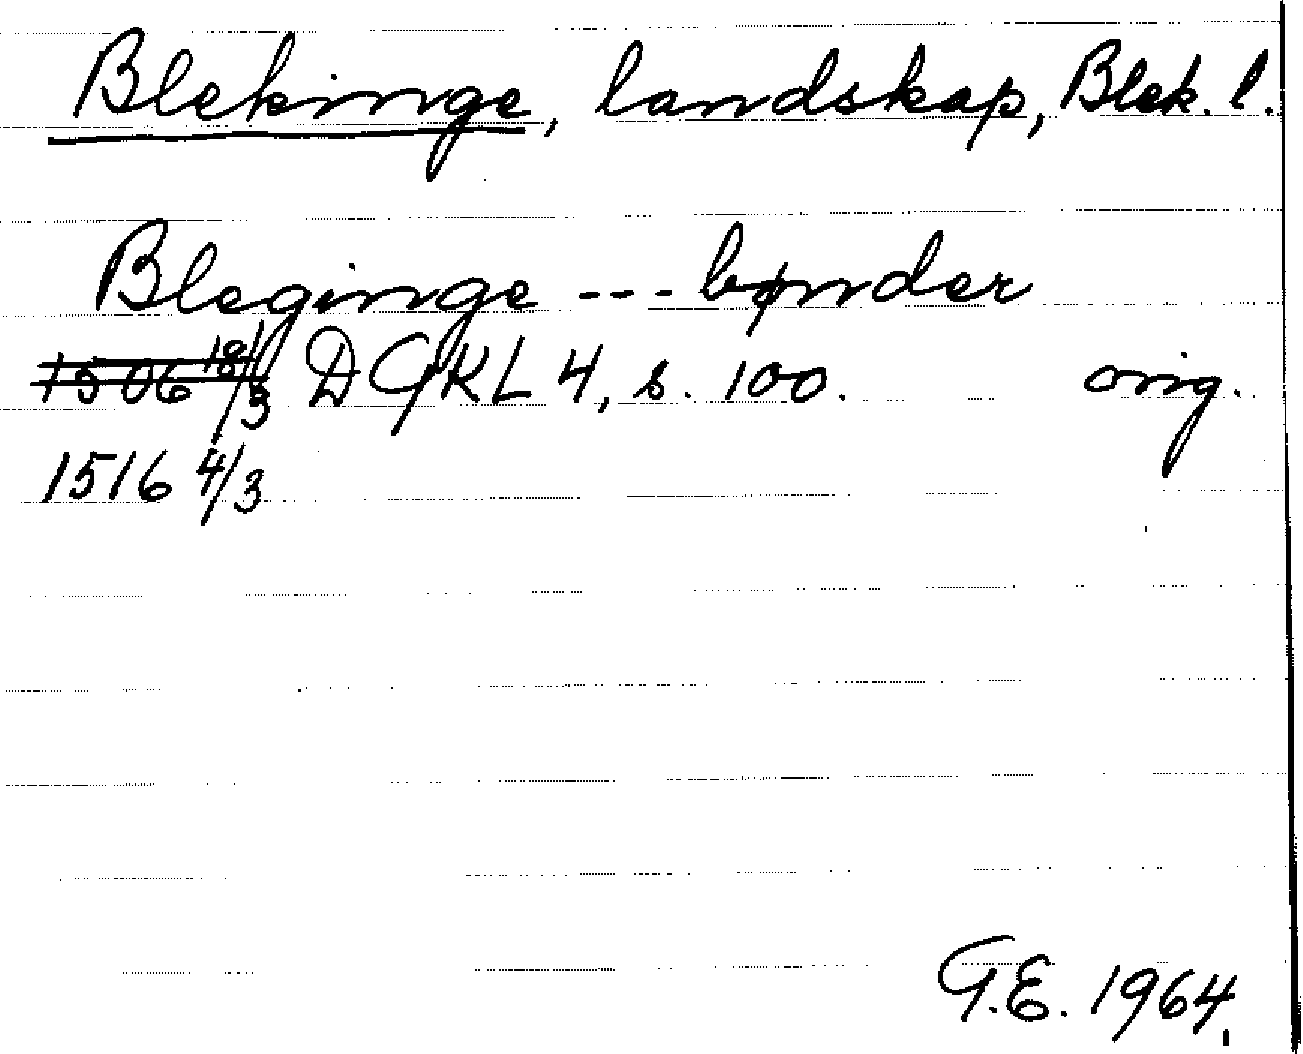 Blekinge, landskap, Blek. l.
Bleginge --- bønder
1506 18/3 DGKL 4, s. 100. orig.
1516 4/3
G.E. 1964.